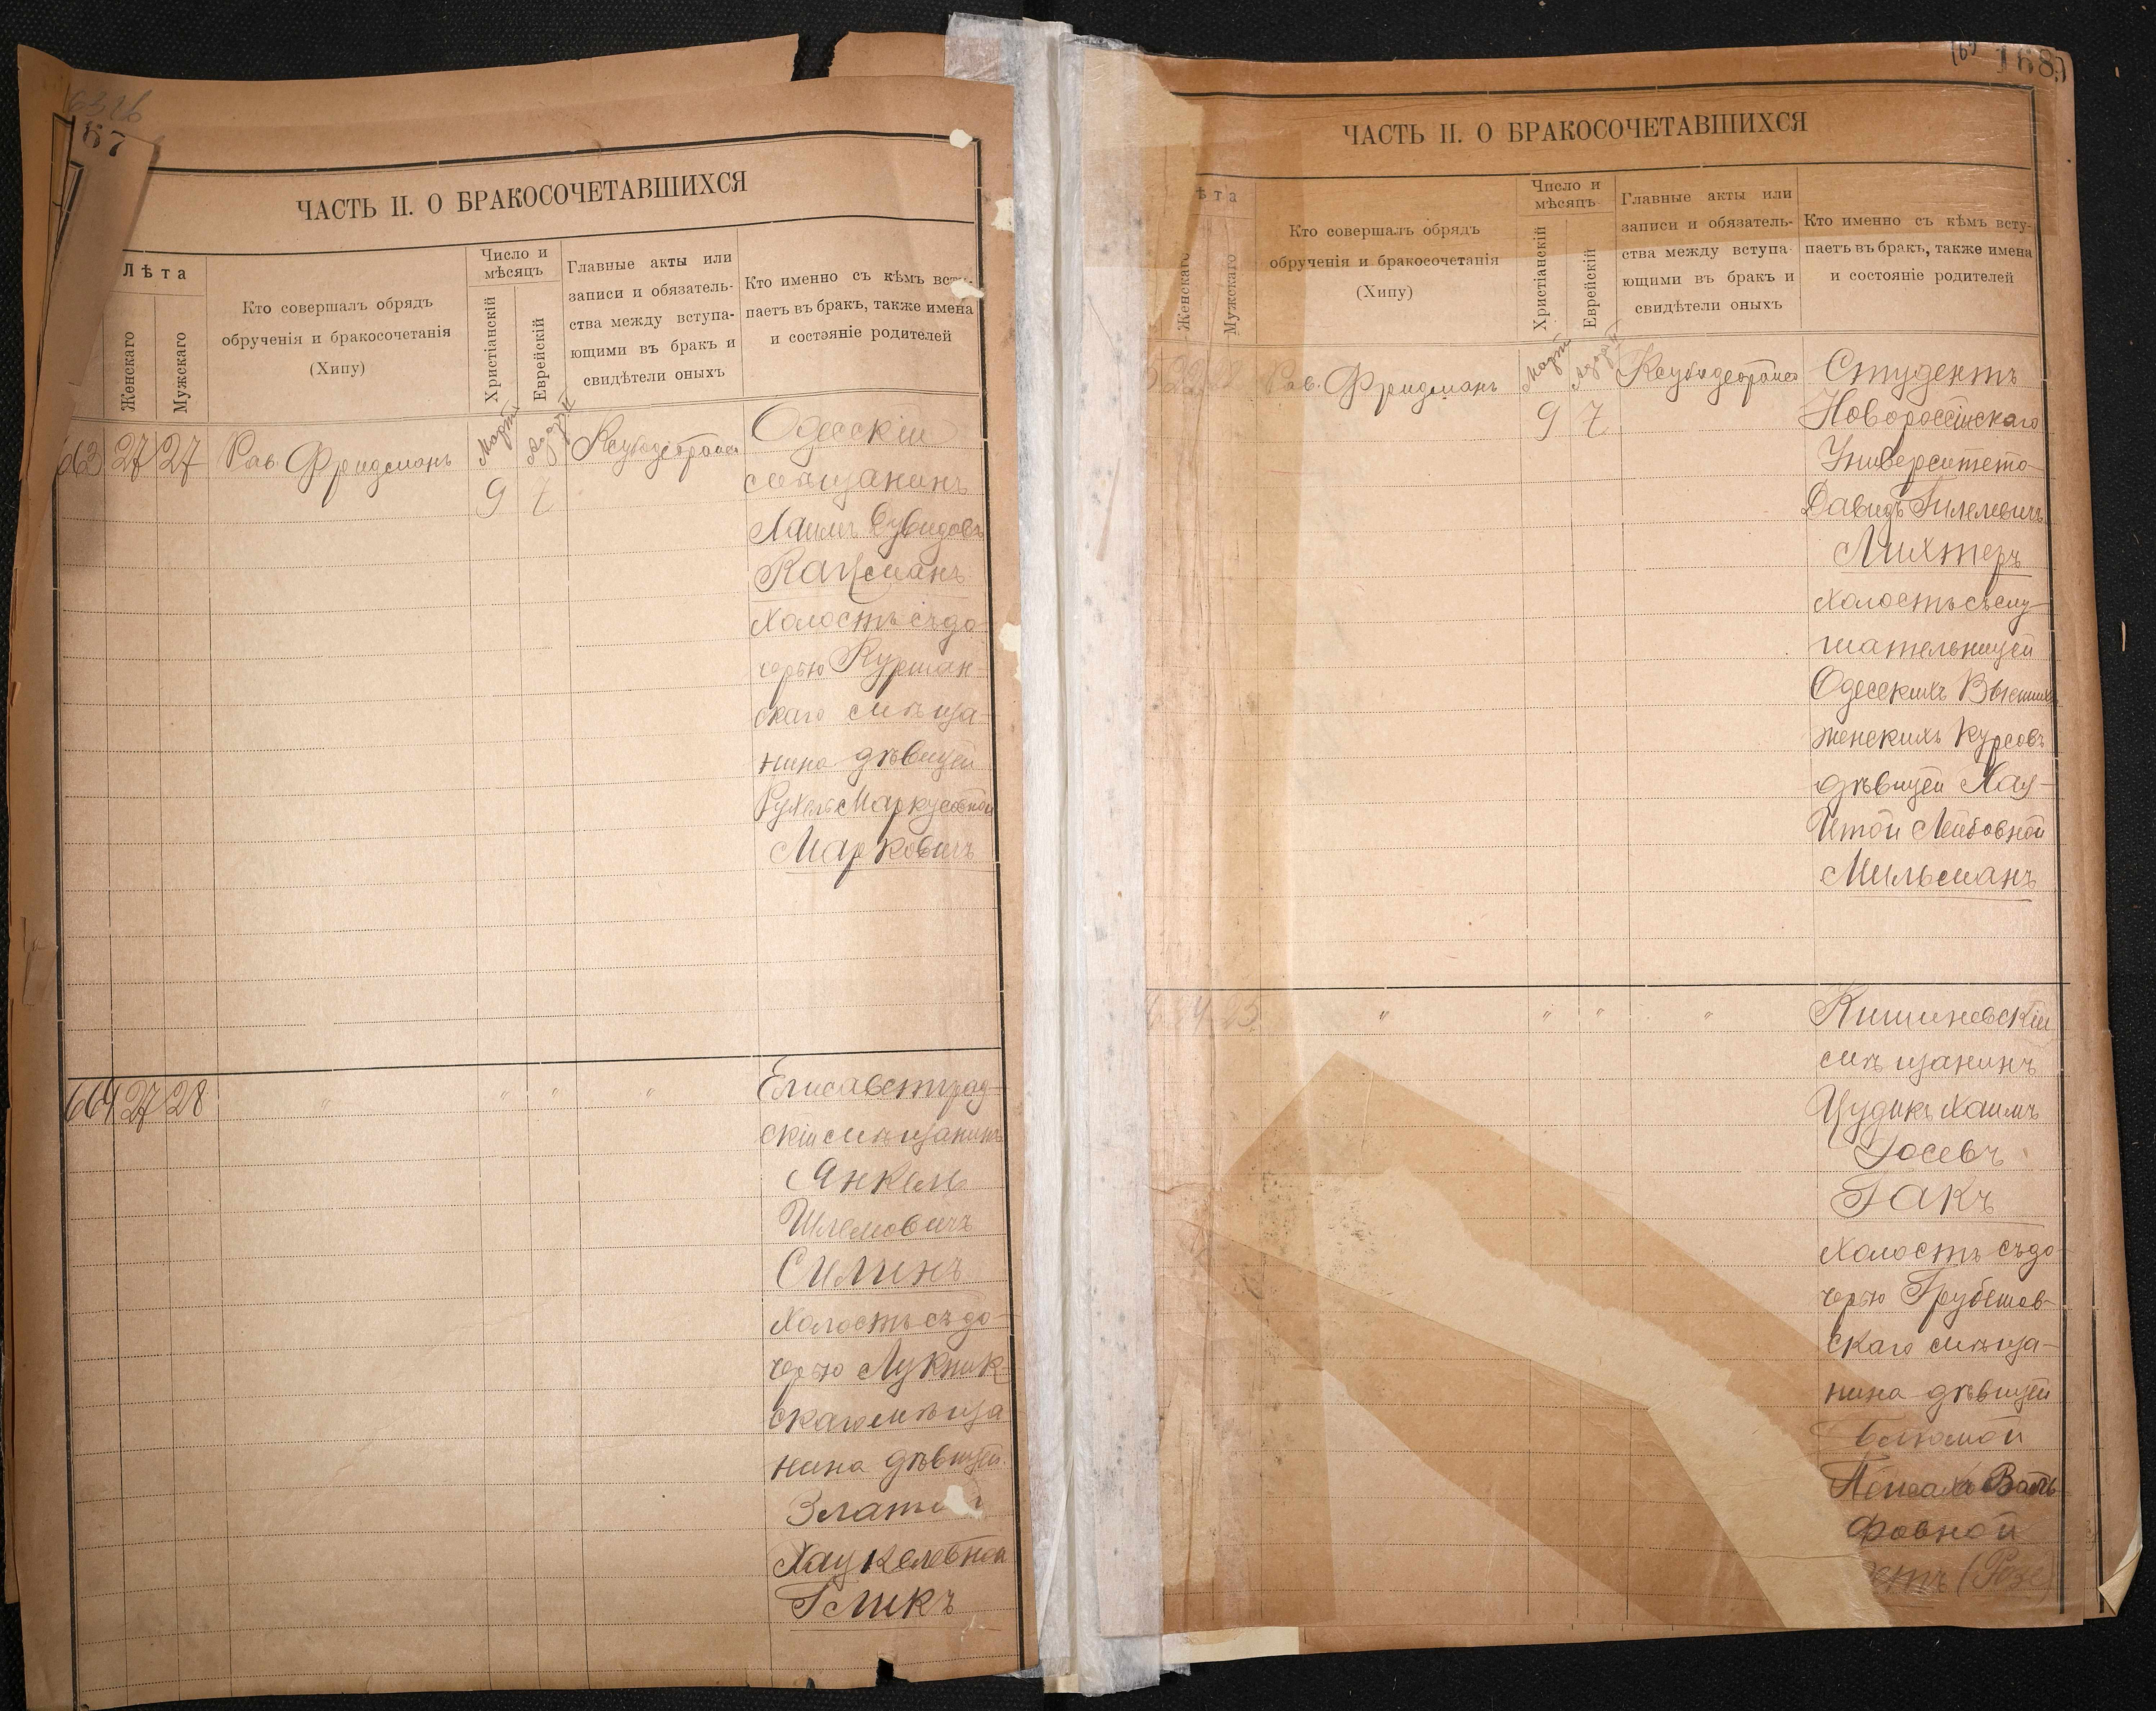 167
ЧАСТЬ II. О БРАКОСОЧЕТАВШИХСЯ
Лѣта
Женскаго
Мужскаго
Кто совершалъ обрядъ
обрученія и бракосочетанія
(Хипу)
Число и
мѣсяцъ
Христіанскій
Еврейскій
Главные акты или
записи и обязатель-
ства между вступа-
ющими въ бракъ и
свидѣтели оныхъ
Кто именно съ кѣмъ всту-
паетъ въ бракъ, также имена
и состояніе родителей
663 27 27 Рав. Фридманъ
Мартъ
9 7
Одесскій
мѣщанинъ
Хаимъ Дувидовъ
Кацманъ
холостъ съ до-
черью Куршан-
скаго мѣща-
нина дѣвицей
Рухель Маркусовной
Марковичъ
664 27 28 " " " "
Елисаветград-
скій мѣщанинъ
Янкель
Шлемовичъ
Силинъ
холостъ съ до-
черью Лукник-
скаго мѣща
нина дѣвицей
Хацкелевной
Гликъ
168
ЧАСТЬ II. О БРАКОСОЧЕТАВШИХСЯ
ѣта
Женскаго
Мужскаго
Кто совершалъ обрядъ
обрученія и бракосочетанія
(Хипу)
Число и
мѣсяцъ
Христіанскій
Еврейскій
Главные акты или
записи и обязатель-
ства между вступа-
ющими въ бракъ и
свидѣтели оныхъ
Кто именно съ кѣмъ всту-
паетъ въ бракъ, также имена
и состояніе родителей
Рав. Фридманъ
Мартъ
9 7
Студентъ
Новороссійскаго
Университета
Давидъ Гилелевичъ
Лихтеръ
холостъ съ слу-
шательницей
Одесскихъ Высшихъ
женскихъ курсовъ
дѣвицей Хая-
Итой Лейбовной
Мильманъ
" " " "
Кишиневскій
мѣщанинъ
Цудикъ Хаимъ
Іосевъ
Гакъ
холостъ съ до-
черью Грубешов-
скаго мѣща-
нина дѣвицей
Блюмой
фовной
(Розе)